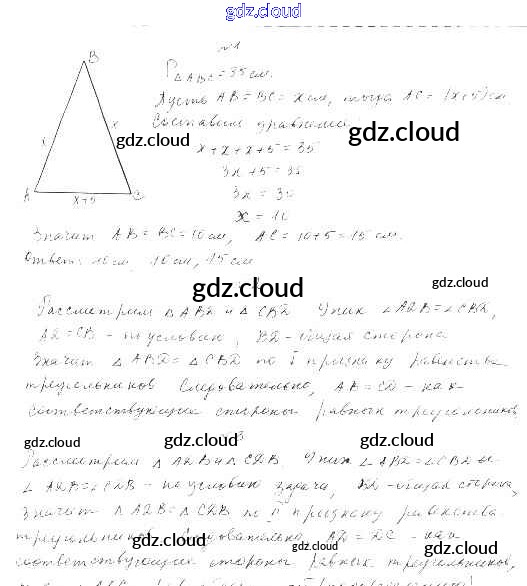 gdz.cloud
№1
B
P△ABC = 35 см.
Пусть AB = BC = x см, тогда AC = (x+5) см
Составим уравнение:
gdz.cloud
gdz.cloud
x
x
x + x + x + 5 = 35
3x + 5 = 35
3x = 30
A
x+5
x = 10
Значит AB = BC = 10 см, AC = 10+5 = 15 см.
Ответ: 10 см, 10 см, 15 см
gdz.cloud
gdz.cloud
Рассмотрим △ABD и △CBD. У них
- по условию, BD - общая сторона
Значит △ABD = △CBD по I признаку равенства
треугольников. Следовательно, AB = CD - как
соответствующие стороны равных треугольников
gdz.cloud
gdz.cloud
3
gdz.cloud
Рассмотрим △ADB и △CDB. У них ∠ABD = ∠CBD и
∠ADB = ∠CDB - по условию задачи, BD - общая сторона,
Значит △ADB = △CDB по II признаку равенства
gdz.cloud
треугольников. Следовательно, AD = DC - как
gdz.cloud
gdz.cloud
соответствующие стороны равных треугольников,